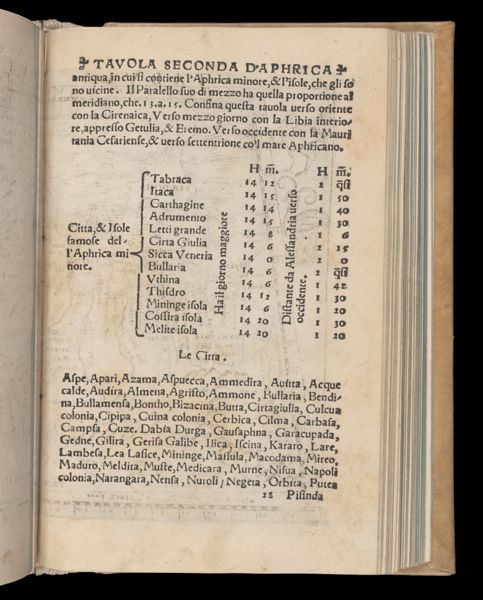 TAVOLA SECONDA D'APHRICA
antiqua, in cui si cōtiene l'Aphrica minore, & l'isole, che gli so
no uicine. Il Paralello suo di mezzo ha quella proportione al
meridiano, che. 13. a. 15. Confina questa tauola uerso oriente
con la Cirenaica, Verso mezzo giorno con la Libia interio-
re, appresso Getulia, & Eremo. Verso occidente con la Mauri
tania Cesariense, & uerso settentrione co'l mare Aphricano.
H m̄. H m̄.
Citta, & Isole
famose del-
l'Aphrica mi
nore.
Ha il giorno maggiore
Distante da Alessandria uerso
occidente.
Tabraca 14 12 2 q̄st
Itaca 14 15 1 50
Carthagine 14 14 1 40
Adrumento 14 15 1 30
Letti grande 14 8 1 6
Cirta Giulia 14 6 2 15
Sicca Veneria 14 0 2 0
Bullaria 14 6 2 q̄st
Vthina 14 6 1 42
Thisdro 14 12 1 30
Mininge isola 14 6 1 20
Cossira isola 14 20 1 30
Melite isola 14 20 1 20
Le Citta.
Aspe, Apari, Azama, Aspuecca, Ammedira, Auitta, Acque
calde, Audira, Almena, Agristo, Ammone, Bullaria, Bendi-
na, Bullamensa, Bontho, Bizacina, Butta, Cirtagiulia, Culcua
colonia, Cipipa, Cuina colonia, Cerbica, Cilma, Carbasa,
Campsa, Cuze. Dabia Durga, Gausaphna, Garacupada,
Gedne, Gilira, Gerisa Galibe, Ilica, Iscina, Kararo, Lare,
Lambesa, Lea Lasice, Mininge, Massula, Macodama, Mireo,
Maduro, Meldita, Muste, Medicara, Murne, Nisua, Napoli
colonia, Narangara, Nensa, Nuroli, Negeta, Orbita, Putea
28 Pisinda